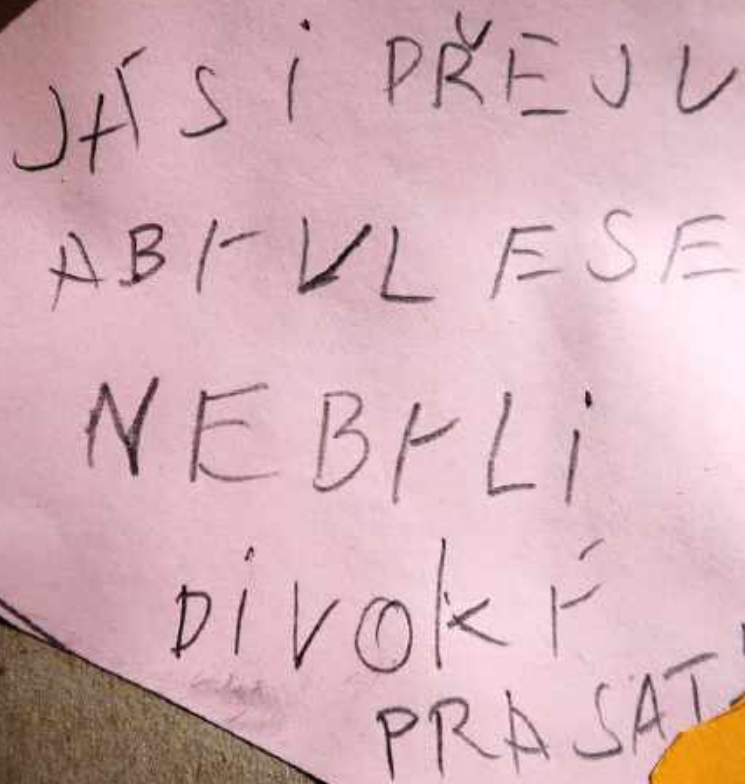 JÁ SI PŘEJU
ABY V LESE
NEBYLI
DIVOKÝ
PRASAT